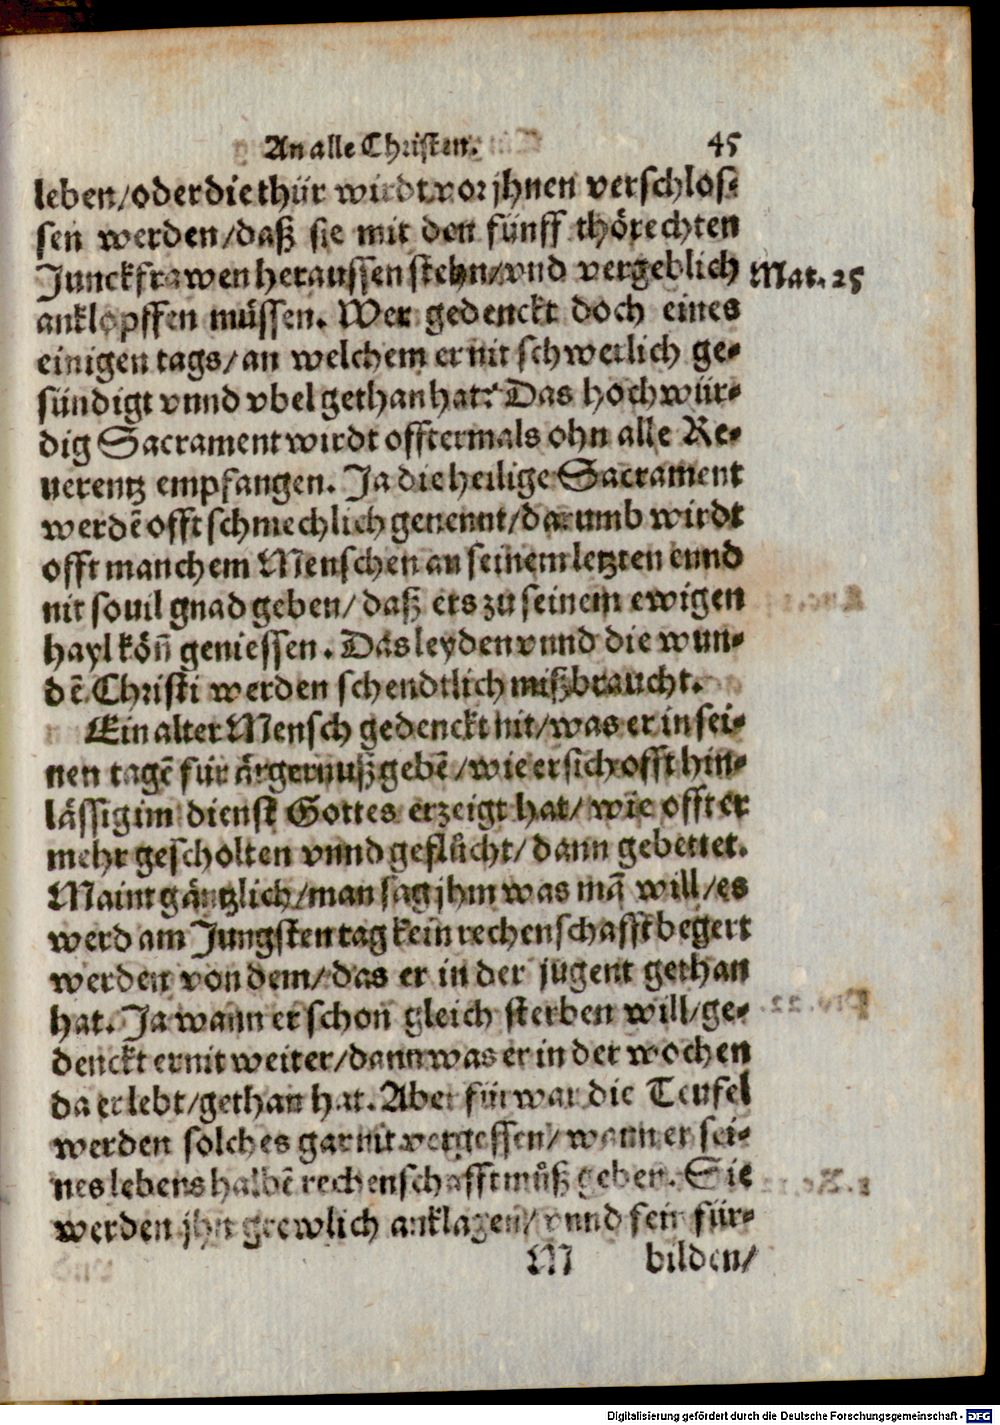 An alle Christen. 45
leben/oder die thür wirdt vor jhnen verschlos⸗
sen werden/daß sie mit den fünff thörechten
Junckfrawen heraussen stehn/vnd vergeblich
Mat. 25
anklopffen müssen. Wer gedenckt doch eines
einigen tags/an welchem er nit schwerlich ge⸗
sündigt vnnd vbel gethan hat? Das hochwür⸗
dig Sacrament wirdt offtermals ohn alle Re⸗
uerentz empfangen. Ja die heilige Sacrament
werdẽ offt schmechlich genennt/darumb wirdt
offt manchem Menschen an seinem letzten ennd
nit souil gnad geben/ daß ers zu seinem ewigen
hayl köñ geniessen. Das leyden vnnd die wun⸗
dẽ Christi werden schendtlich mißbraucht.
Ein alter Mensch gedenckt nit/was er in sei⸗
nen tagẽ für ärgernuß gebẽ/wie er sich offt hin⸗
lässig im dienst Gottes erzeigt hat/ wie offt er
mehr gescholten vnnd geflůcht/dann gebettet.
Maint gäntzlich/man sag jhm was mã will/es
werd am Jungsten tag kein rechenschafft begert
werden von dem/das er in der jugent gethan
hat. Ja wann er schon gleich sterben will/ge⸗
denckt er nit weiter/dann was er in der wochen
da er lebt/gethan hat. Aber fürwar die Teufel
werden solches gar nit vergessen/wann er sei⸗
nes lebens halbẽ rechenschafft můß geben. Sie
werden jhn grewlich anklagen/vnnd fein für⸗
M bilden/
Digitalisierung gefördert durch die Deutsche Forschungsgemeinschaft - DFG